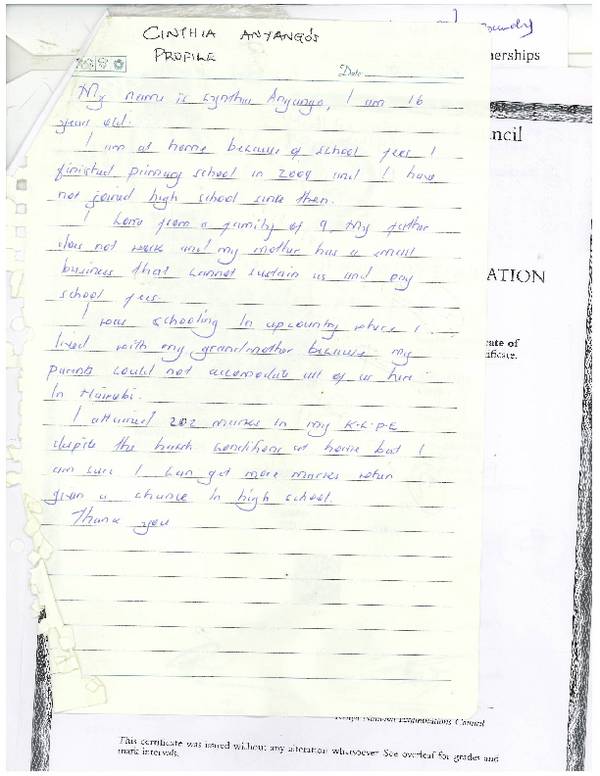 CINTHIA ANYANGO'S
PROFILE
Date
nerships
ncil
My name is Cynthia Anyango, I am 16
years old.
I am at home because of school fees I
finished primary school in 2009 and I have
not joined high school since then.
I come from a family of 9. My father
does not work and my mother has a small
business that cannot sustain us and pay
school fees.
ATION
I was schooling in upcountry where I
lived with my grandmother because my
parents could not accomodate all of us here
in Nairobi.
ate of
ificate.
I attained 202 marks in my K.C.P.E
despite the harsh conditions at home but I
am sure I can get more marks when
given a chance in high school.
Thank you
Kenya National Examinations Council
This certificate was issued without any alteration whatsoever. See overleaf for grades and
mark intervals.